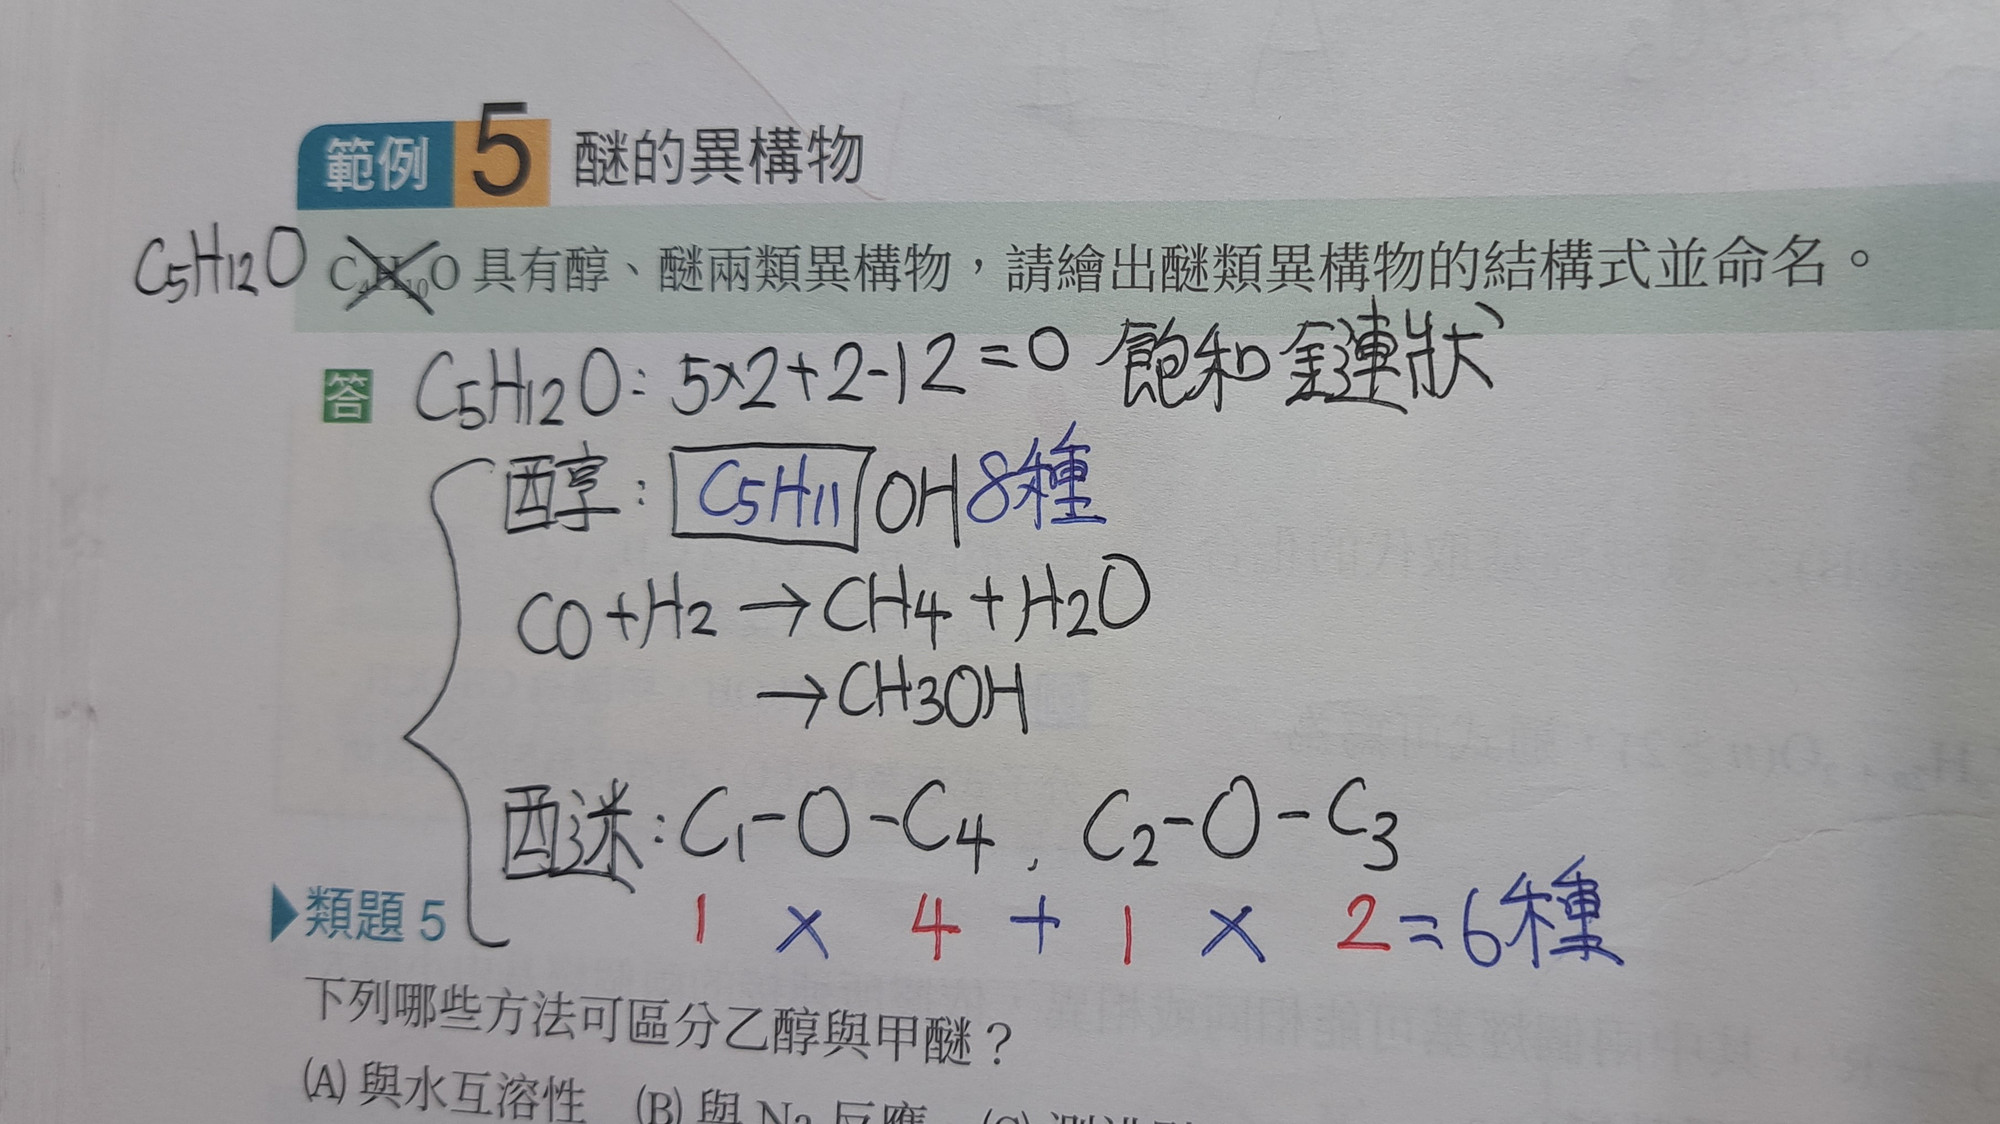 範例 5 醚的異構物
C5H12O C4H10O 具有醇、醚兩類異構物，請繪出醚類異構物的結構式並命名。
答 C5H12O: 5x2+2-12=0 飽和 鏈狀
醇: C5H11 OH 8種
CO+H2→CH4+H2O
→CH3OH
醚: C1-O-C4, C2-O-C3
1 x 4 + 1 x 2 = 6種
類題 5
下列哪些方法可區分乙醇與甲醚？
(A) 與水互溶性 (B) 與 Na 反應 (C)